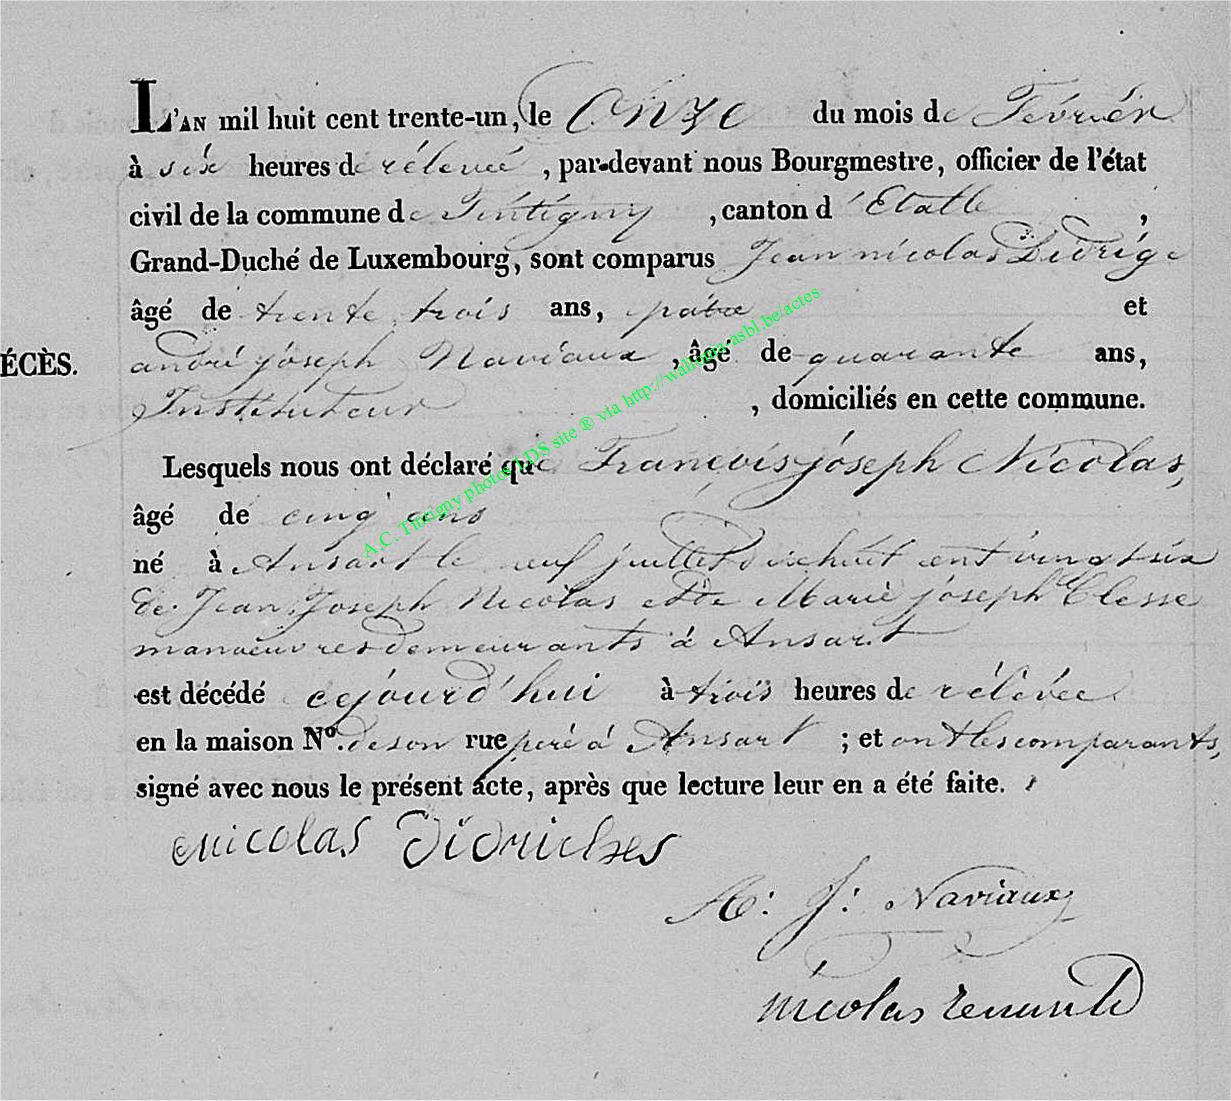 L'AN mil huit cent trente-un, le Onze du mois de Février
à six heures de rélevée, par-devant nous Bourgmestre, officier de l'état
civil de la commune de Tintigny, canton d'Etalle,
Grand-Duché de Luxembourg, sont comparus Jean nicolas Didrige
âgé de trente trois ans, patre et
ÉCÈS.
andré joseph Naviaux, âgé de quarante ans,
Instituteur, domiciliés en cette commune.
Lesquels nous ont déclaré que François joseph Nicolas,
âgé de cinq ans
né à Ansart le neuf juillet dix huit cent vingt six
de Jean Joseph Nicolas et de Marie joseph Clesse
manoeuvres demeurants à Ansart
est décédé cejourd'hui à trois heures de rélévée
en la maison Nº. de son rue peré á Ansart ; et ont les comparants,
signé avec nous le présent acte, après que lecture leur en a été faite.
Nicolas Didriches
A: J: Naviaux
Nicolas
A.C. Tintigny photos LDS site ® via http://wallonia-asbl.be/actes